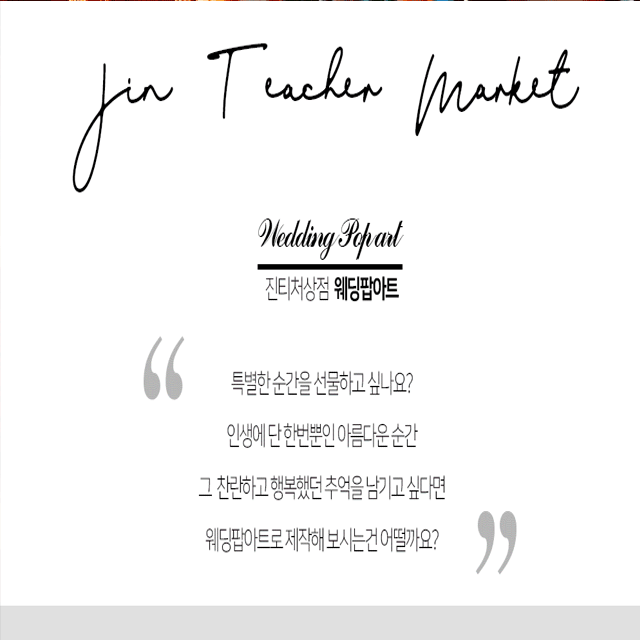 Jin Teacher Market
Wedding Pop art
진티처상점 웨딩팝아트
특별한 순간을 선물하고 싶나요?
인생에 단 한번뿐인 아름다운 순간
그 찬란하고 행복했던 추억을 남기고 싶다면
웨딩팝아트로 제작해 보시는건 어떨까요?